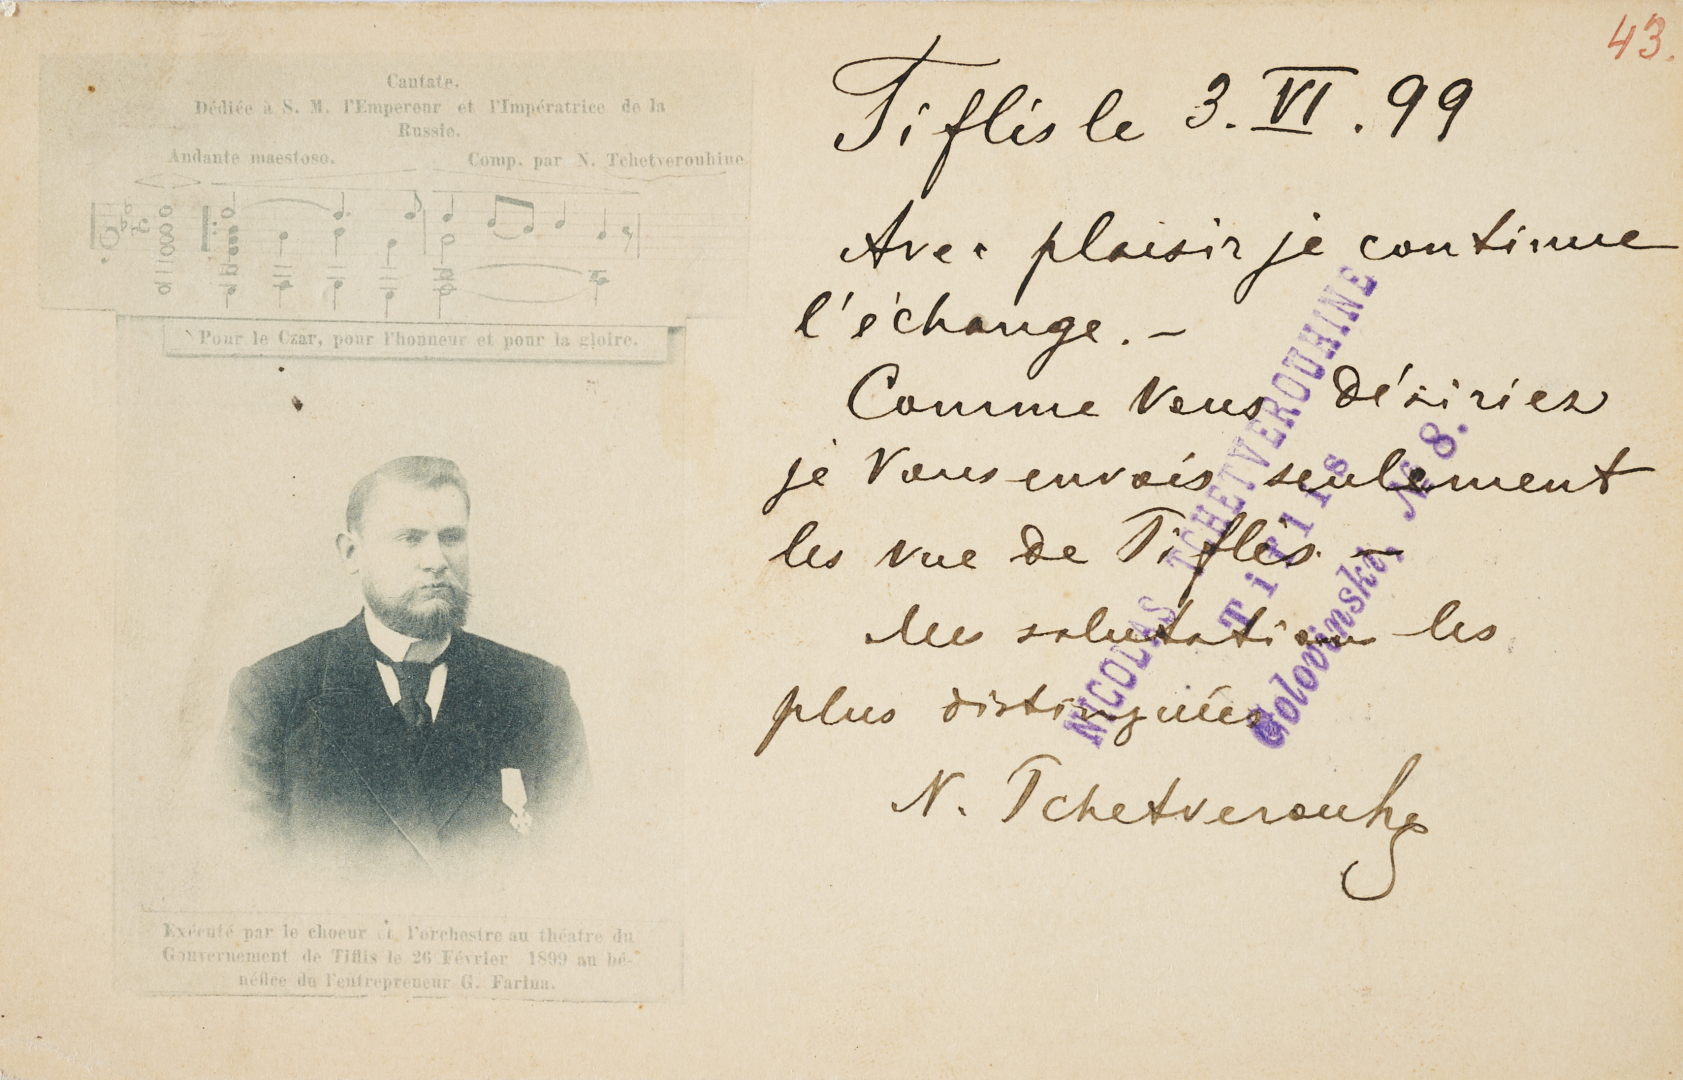 43.
Cantate.
Dédiée à S. M. l'Empereur et l'Impératrice de la
Russie.
Andante maestoso. Comp. par N. Tchetverouhine
Pour le Czar, pour l'honneur et pour la gloire.
Exécuté par le choeur et l'orchestre au théatre du
Gouvernement de Tiflis le 26 Février 1899 au bé-
néfice du l'entrepreneur G. Farina.
Tiflis le 3. VI. 99
Avec plaisir je continue
l'échange. –
Comme Vous désiriez
je Vous envois seulement
les vue de Tiflis. –
Mes salutation les
plus distinguées
N. Tchetverouh
NICOLAS TCHETVEROUHINE
Tiflis
Golovinski, № 8.